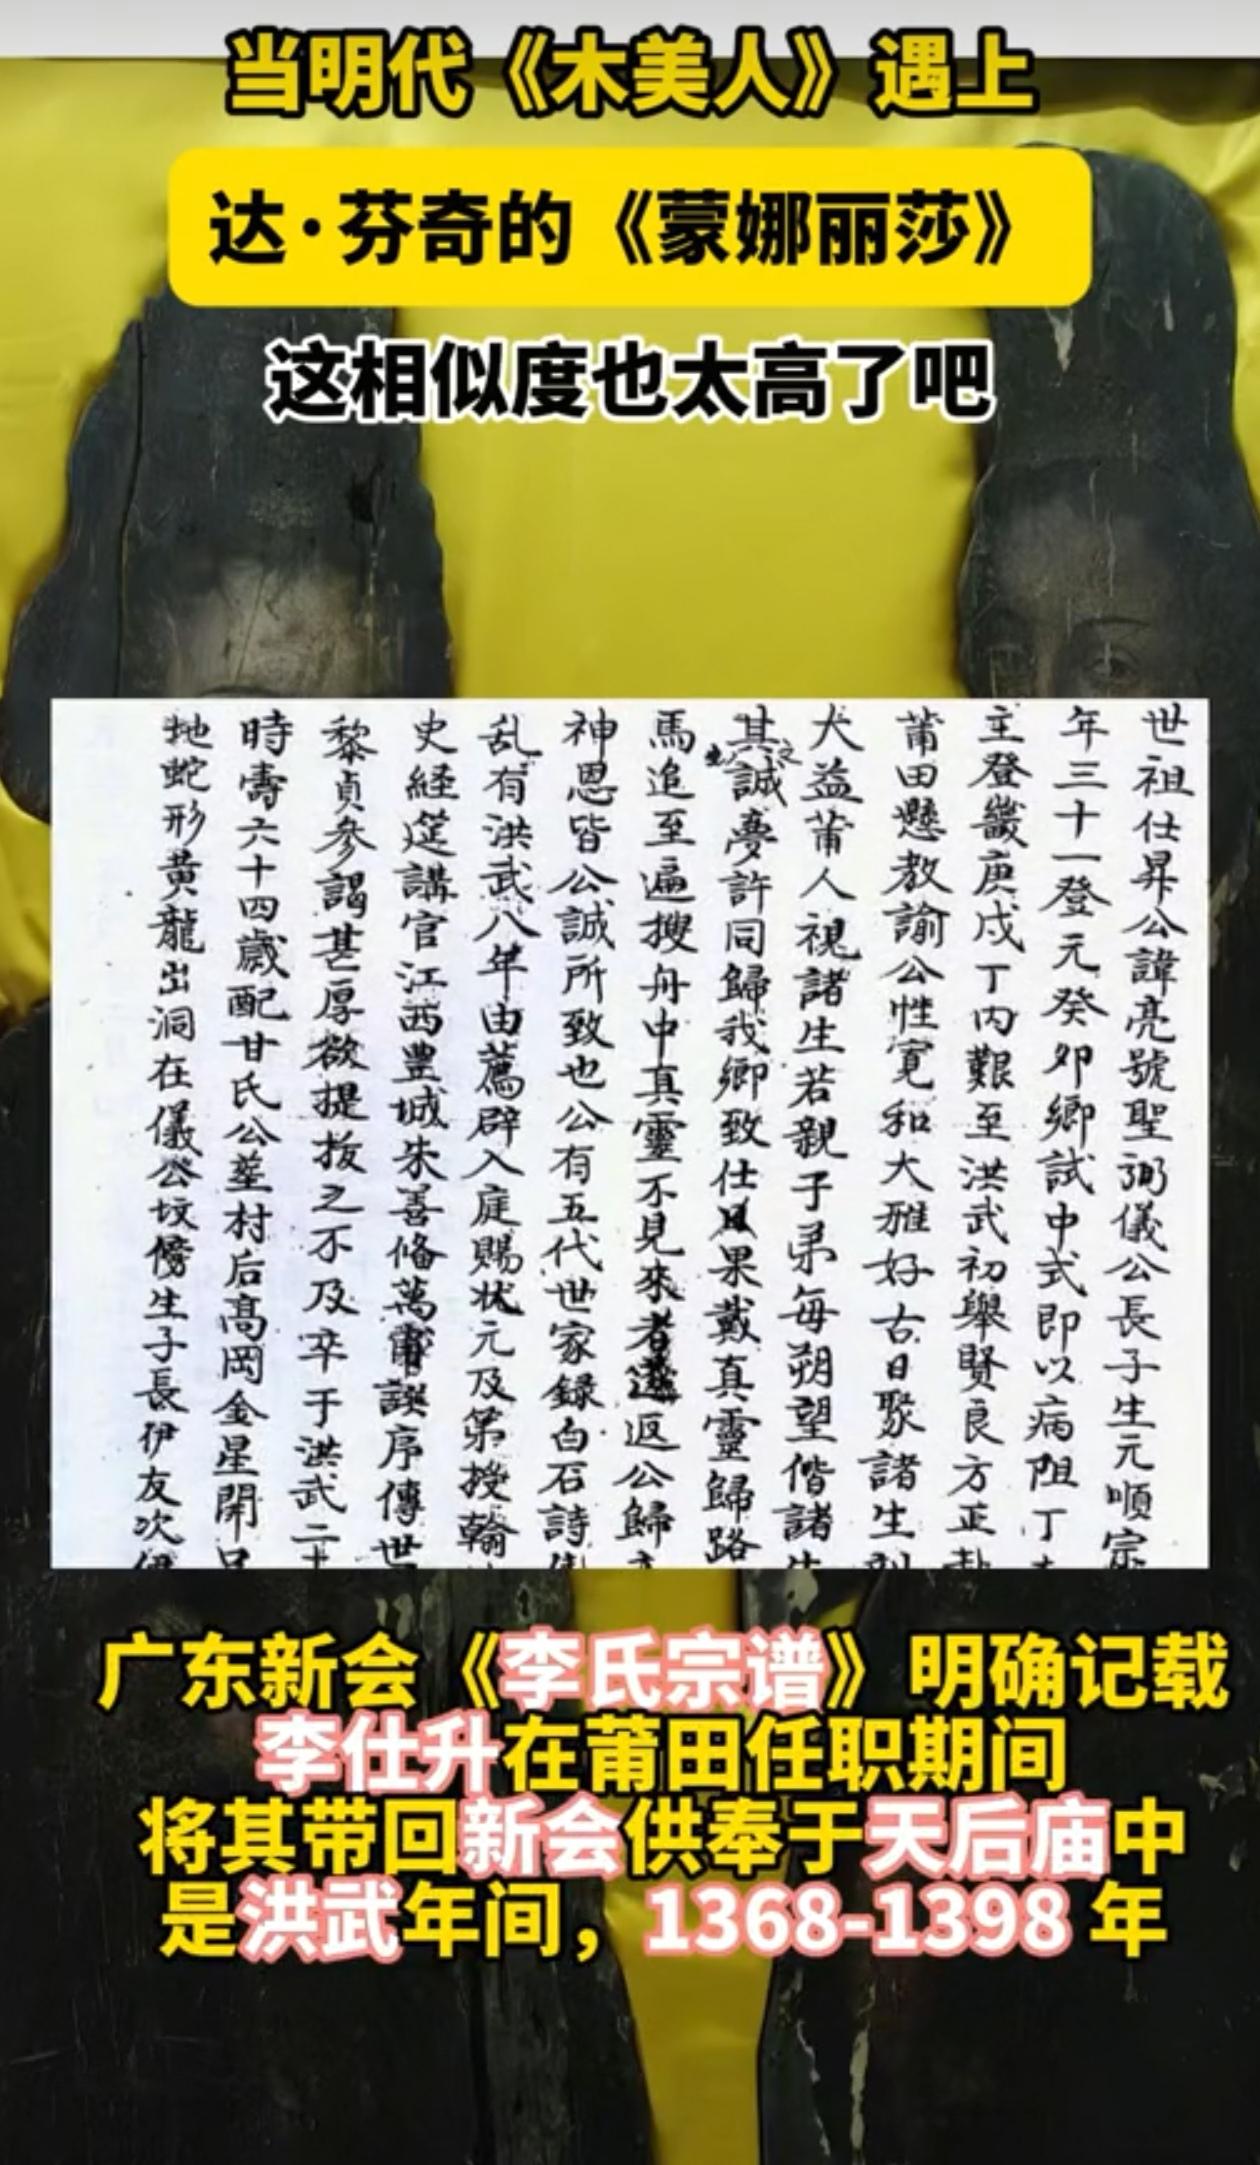 当明代《木美人》遇上
达·芬奇的《蒙娜丽莎》
这相似度也太高了吧
世祖仕昇公諱亮號聖弼儀公長子生元順宗
年三十一登元癸卯鄉試中式即以病阻丁
主登畿庚戍丁内艱至洪武初舉賢良方正
莆田懸教諭公性寛和大雅好古日聚諸生
犬益莆人視諸生若親子弟每朔望偕諸生
其誠夢許同歸我鄉致仕果戴真靈歸路
馬追至遍搜舟中真靈不見來者返公歸
神恩皆公誠所致也公有五代世家録白石詩
乱有洪武八年由薦辟入庭賜状元及第授翰
史経筵講官江西豊城朱善俻萬譔序傳世
黎貞參謁甚厚欲提拔之不及卒于洪武二十
時壽六十四歳配甘氏公塟村后高岡金星開
地蛇形黄龍出洞在儀公坟傍生子長伊友次
广东新会《李氏宗谱》明确记载
李仕升在莆田任职期间
将其带回新会供奉于天后庙中
是洪武年间，1368-1398 年